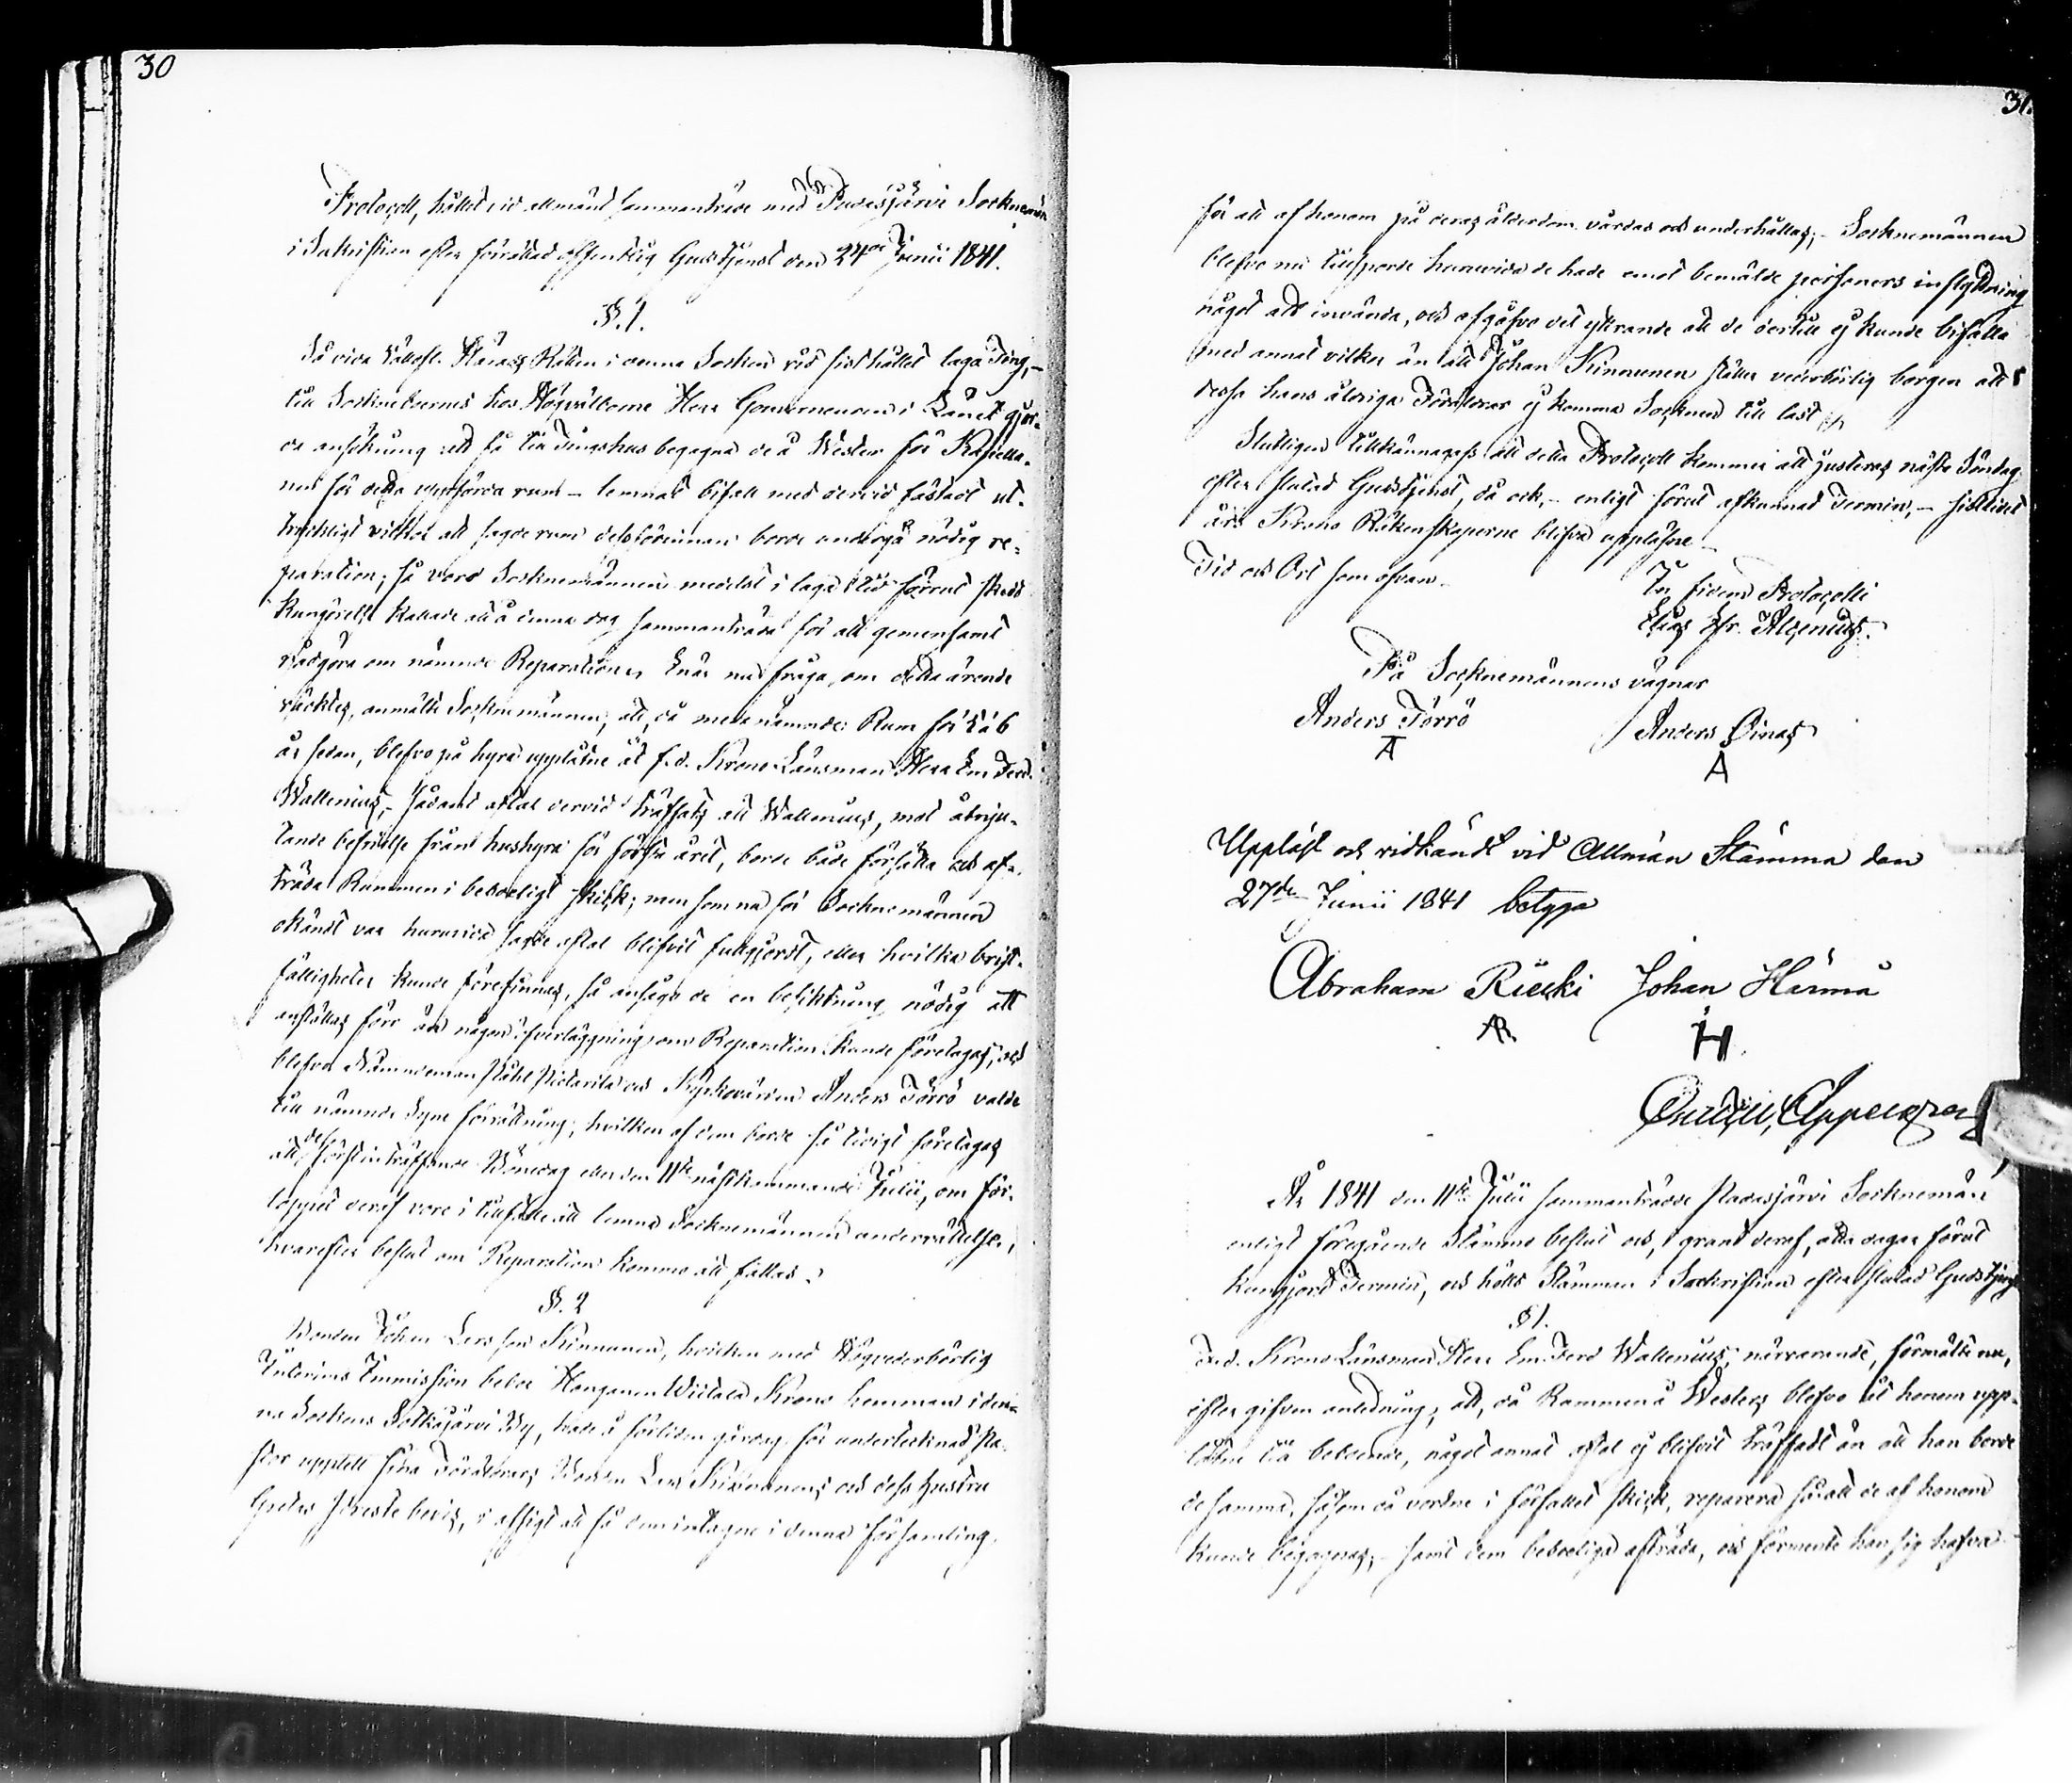 30
Protocoll, hållet vid allmänt sammanträde med Pudasjärvi Sockenmän
i Sakristian efter förrättad offentlig Gudstjenst den 24de Junii 1841.
§. 1.
Så vida Vällofl. Härads Rätten i denna Socken vid sist hållet laga Ting,
till Sockneboernes hos Högvälborne Herr Gouverneuren i Länet gjor-
da ansökning att få till Tingshus begagna de å Westers för Kapella-
nen för detta uppförda rum – lemnat bifall med dervid fästadt ut-
tryckligt vilkor att sagde rum dessförinnan borde undergå nödig re-
paration; så voro Socknemännen medelst i laga tid förut skedd
Kungörelse kallade att å denna dag sammanträda för att gemensamt
rådgöra om nämnde Reparation. Enär nu fråga om detta ärende
väcktes, anmälte Socknemännen, att, då meranämnde Rum för 5 à 6
år sedan, blefvo på hyra upplåtne åt f.d. Krono Länsman Herr Em. Ferd.
Wallenius, – sådant aftal dervid träffats att Wallenius, mot åtnju-
tande befrielse från hushyra för första året, borde både försätta och af-
träda Rummen i beboeligt skick; men som nu för Socknemännen
okändt var huruvida sagde aftal blifvit fullgjordt, eller hvilka brist-
fälligheter kunde förefinnas, så ansågo de en besiktning nödig att
anställas förr än någon öfverläggning om Reparation kunde företagas; och
blefvo Nämndeman Påhl Pietarila och Kyrkovärden Anders Törrö valde
till nämnde Syne förrättning; hvilken af dem borde så tidigt företagas
att de först inträffande Bönedag eller den 11te nästkommande Julii, om för-
loppet deraf vore i tillfälle att lemna Socknemännen underrättelse,
hvarefter beslut om Reparation komme att fattas.
§. 2
Bonden Johan Larsson Kinnunen, hvilken med Högvederbörlig
Interims Immission bebor Hanganen Wiitala Krono hemman i den-
na Sockens Sotkajärvi By, hade å förliden gårdag för undertecknad Pa-
stor upptett sina Föräldrars, Bonden Lars Kinnunens och dess hustru
Gretas Preste bevis, i afsigt att få dem intagne i denna församling,
31.
för att af honom på deras ålderdom vårdas och underhållas; – Socknemännen
blefvo nu tillsporde huruvida de hade emot bemälde personers inflyttning
något att invända, och afgåfvo det yttrande att de dertill ej kunde bifalla
med annat vilkor än att Johan Kinnunen ställer vederbörlig borgen att
dessa hans åldriga Föräldrar ej komma Socknen till last
Slutligen tillkännagafs att detta Protocoll kommer att justeras nästa Söndag
efter slutad Gudstjenst, då ock, – enligt förut afkunnad Termin, – sistlidet
års Krono Räkenskaperne blifva uppläsne –
Tid och Ort som ofvan.
In fidem Protocolli
Elias Gr. Alcenius.
På Socknemännens vägnar
Anders Törrö Anders Oinas
A A
Uppläst och vidkändt vid Allmän Stämma den
27de Junii 1841 betyga
Abraham Riecki Johan Härmä
AR H
År 1841 den 11te Julii sammanträdde Pudasjärvi Socknemän
enligt föregående Stämmo beslut och, i grund deraf, åtta dagar förut
kungjord Termin, och hölls Stämman i Sackristian efter slutad Gudstjenst
§ 1.
F.d. Krono Länsman Herr Em. Ferd Wallenius, närvarande, förmälte nu,
efter gifven anledning, att, då Rummen å Westers blefvo åt honom upp-
låtne till beboende, något annat aftal ej blifvit träffadt än att han borde
de samma, såsom då vordne i förfallet skick, reparera så att de af honom
kunde begagnas, – samt dem beboeliga afträda, och förmente han sig hafva